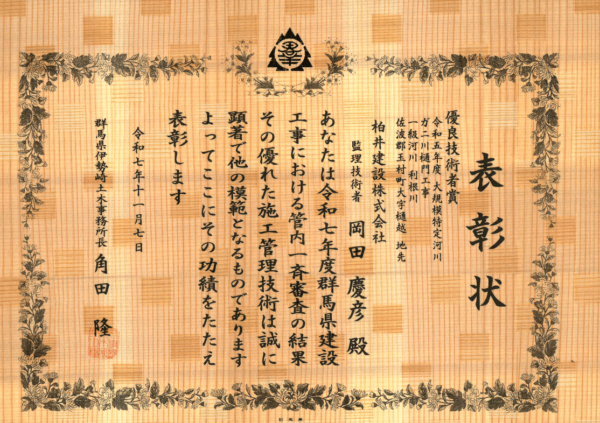 表彰状
優良技術者賞
令和五年度 大規模特定河川
ガニ川樋門工事
一級河川 利根川
佐波郡玉村町大字樋越 地先
柏井建設株式会社
監理技術者 岡田 慶彦 殿
あなたは令和七年度群馬県建設
工事における管内一斉審査の結果
その優れた施工管理技術は誠に
顕著で他の模範となるものであります
よってここにその功績をたたえ
表彰します
令和七年十一月七日
群馬県伊勢崎土木事務所長 角田 隆